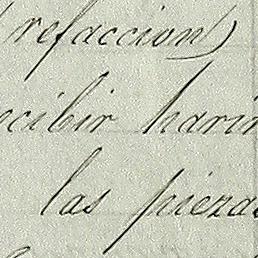 refaccion)
ecibir harin
las pieza